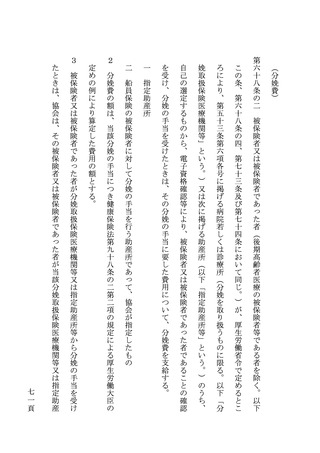 （分娩費）
第六十八条の二　被保険者又は被保険者であった者（後期高齢者医療の被保険者等である者を除く。以下
この条、第六十八条の四、第七十三条及び第七十四条において同じ。）が、厚生労働省令で定めるとこ
ろにより、第五十三条第六項各号に掲げる病院若しくは診療所（分娩を取り扱うものに限る。以下「分
娩取扱保険医療機関等」という。）又は次に掲げる助産所（以下「指定助産所等」という。）のうち、
自己の選定するものから、電子資格確認等により、被保険者又は被保険者であった者であることの確認
を受け、分娩の手当を受けたときは、その分娩の手当に要した費用について、分娩費を支給する。
一　指定助産所
二　船員保険の被保険者に対して分娩の手当を行う助産所であって、協会が指定したもの
２　分娩費の額は、当該分娩の手当につき健康保険法第九十八条の二第二項の規定による厚生労働大臣の
定めの例により算定した費用の額とする。
３　被保険者又は被保険者であった者が分娩取扱保険医療機関等又は指定助産所等から分娩の手当を受け
たときは、協会は、その被保険者又は被保険者であった者が当該分娩取扱保険医療機関等又は指定助産
七一頁